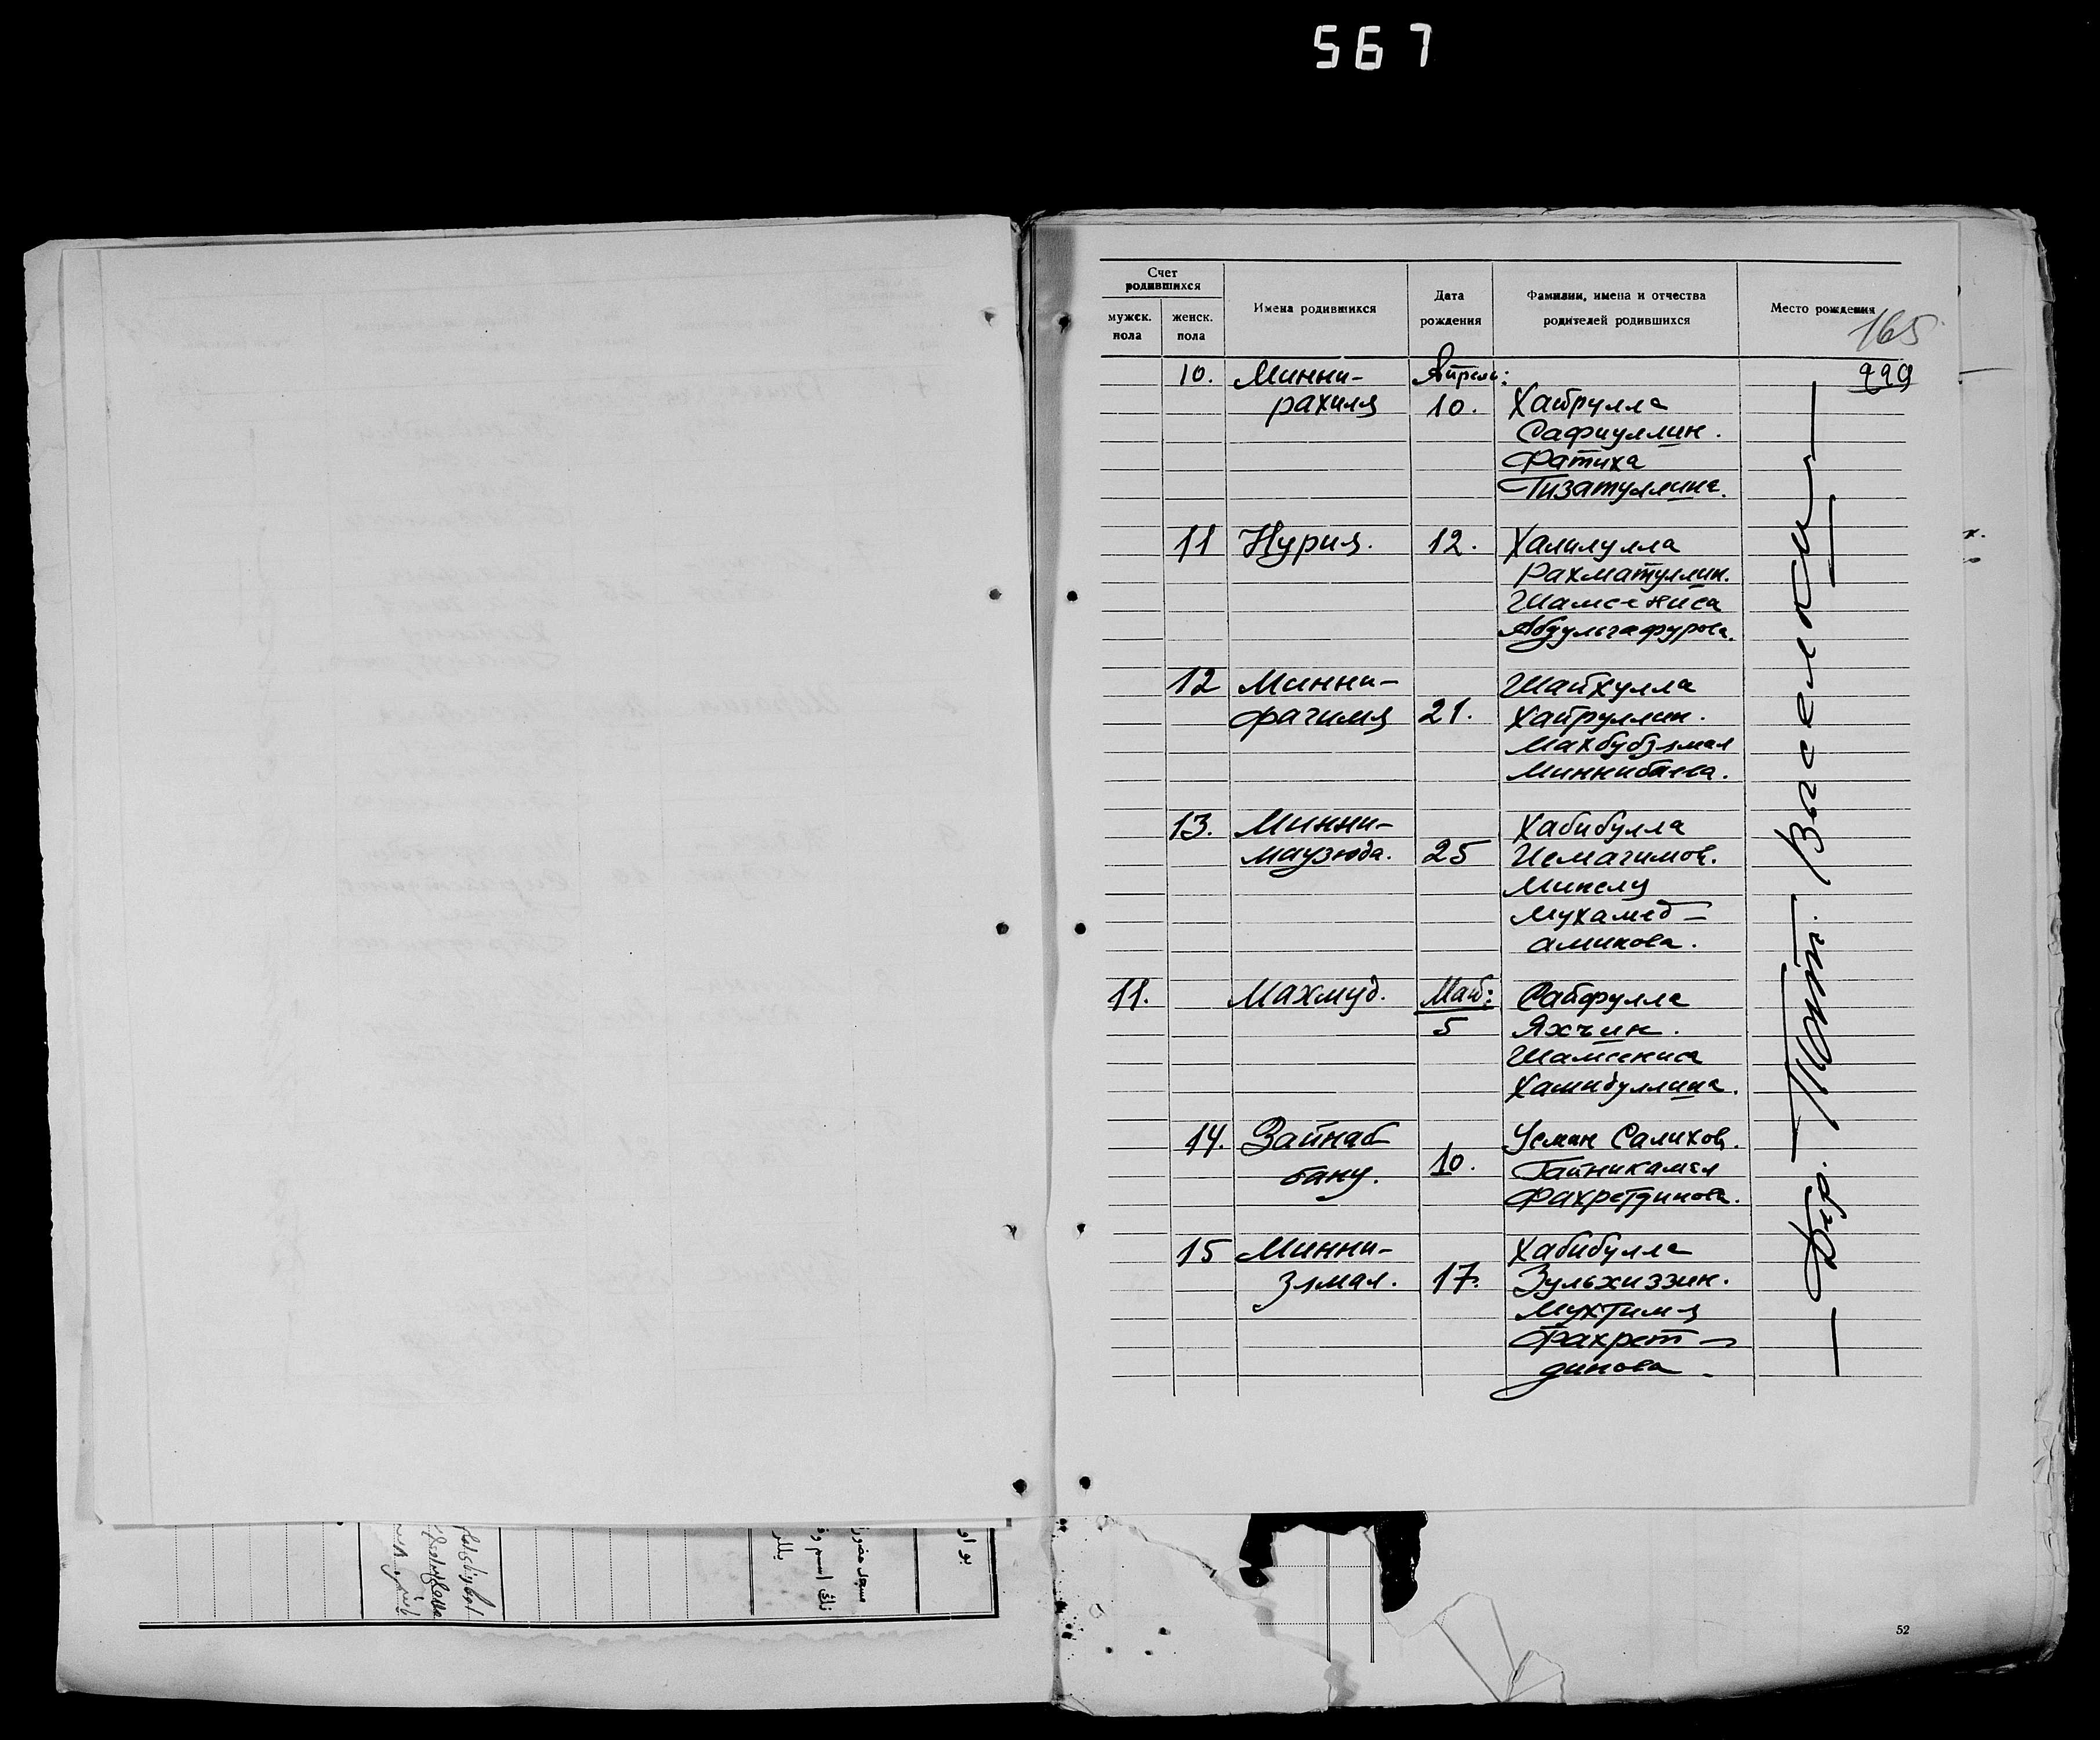 567
Счет родившихся
мужск. пола
женск. пола
Имена родившихся
Дата рождения
Фамилии, имена и отчества родителей родившихся
Место рождения
165
999
10. Минни- Апрель:
рахиля 10. Хайрулла
Сафиуллин.
Фатиха
Гизатуллина.
11 Нурия. 12. Халилулла
Рахматуллин.
Шамсениса
Абдульгафурова.
12 Минни- Шайхулла
фагиля 21. Хайруллин.
Махбубзямал
Миннибаева.
13. Минни- Хабибулла
маузюда. 25 Исмагилов.
Минслу
Мухамед-
аминова.
11. Махмуд. Май: Сайфулла
5 Яхчин.
Шамсениса
Хамидуллина.
14. Зайнаб Усман Салихов.
бану. 10. Гайникамал
Фахретдинова.
15 Минни- Хабибулла
зямал. 17. Зульхиззин.
Мухтимя
Фахрет-
динова.
— Дер. Тат. Выселки —
52